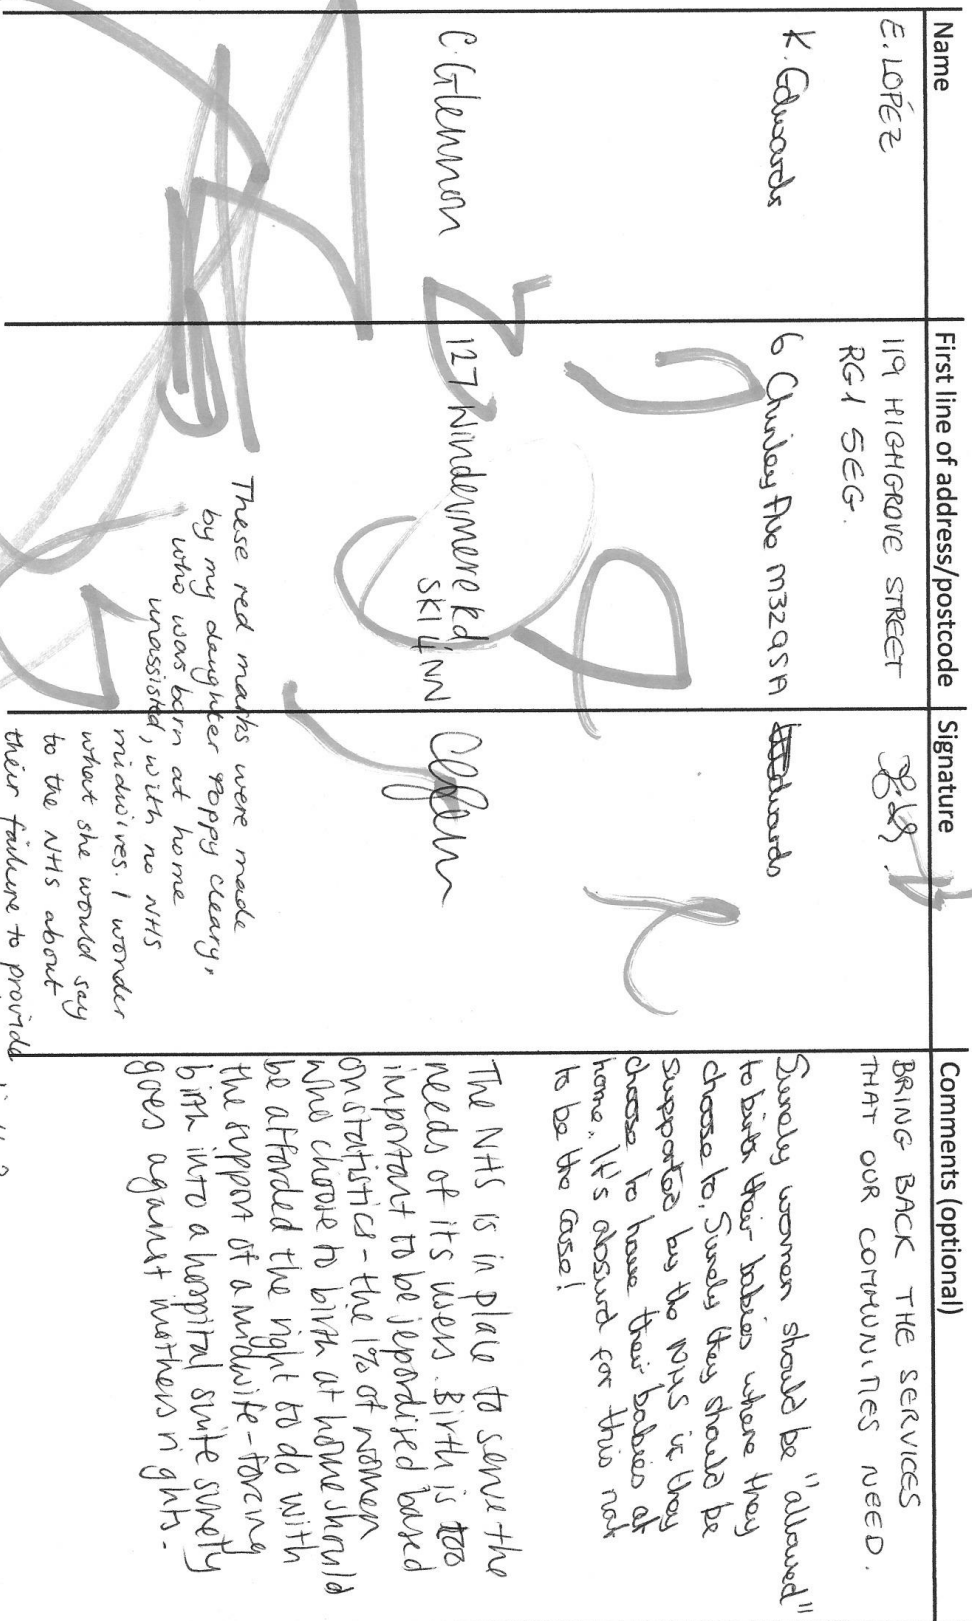 Name
First line of address/postcode
Signature
Comments (optional)
E. LOPÉZ
119 HIGHGROVE STREET
RG1 5EG.
BRING BACK THE SERVICES
THAT OUR COMMUNITIES NEED.
K. Edwards
6 Chinley Ave M32 9SA
KEdwards
Surely women should be "allowed"
to birth their babies where they
choose to, Surely they should be
supported by the NHS if they
choose to have their babies at
home. It's absurd for this not
to be the case!
C. Glennon
127 Windermere Rd
SK1 4NN
The NHS is in place to serve the
needs of its users. Birth is too
important to be jepordised based
on statistics - the 1% of women
who choose to birth at home should
be afforded the right to do with
the support of a midwife - forcing
birth into a hospital suite surely
goes against mothers rights.
These red marks were made
by my daughter Poppy Cleary,
who was born at home
unassisted, with no NHS
midwives. I wonder
what she would say
to the NHS about
their failure to provide